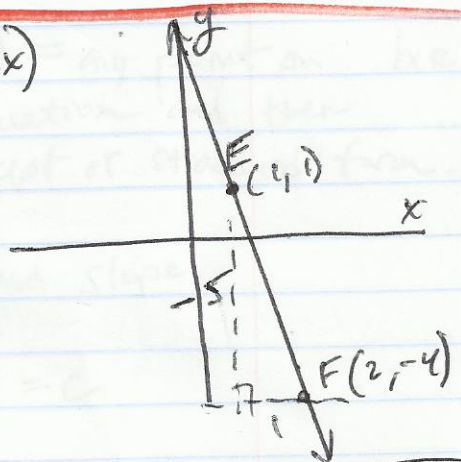 x)
y
E
(1,1)
x
-5
F(2,-4)
1